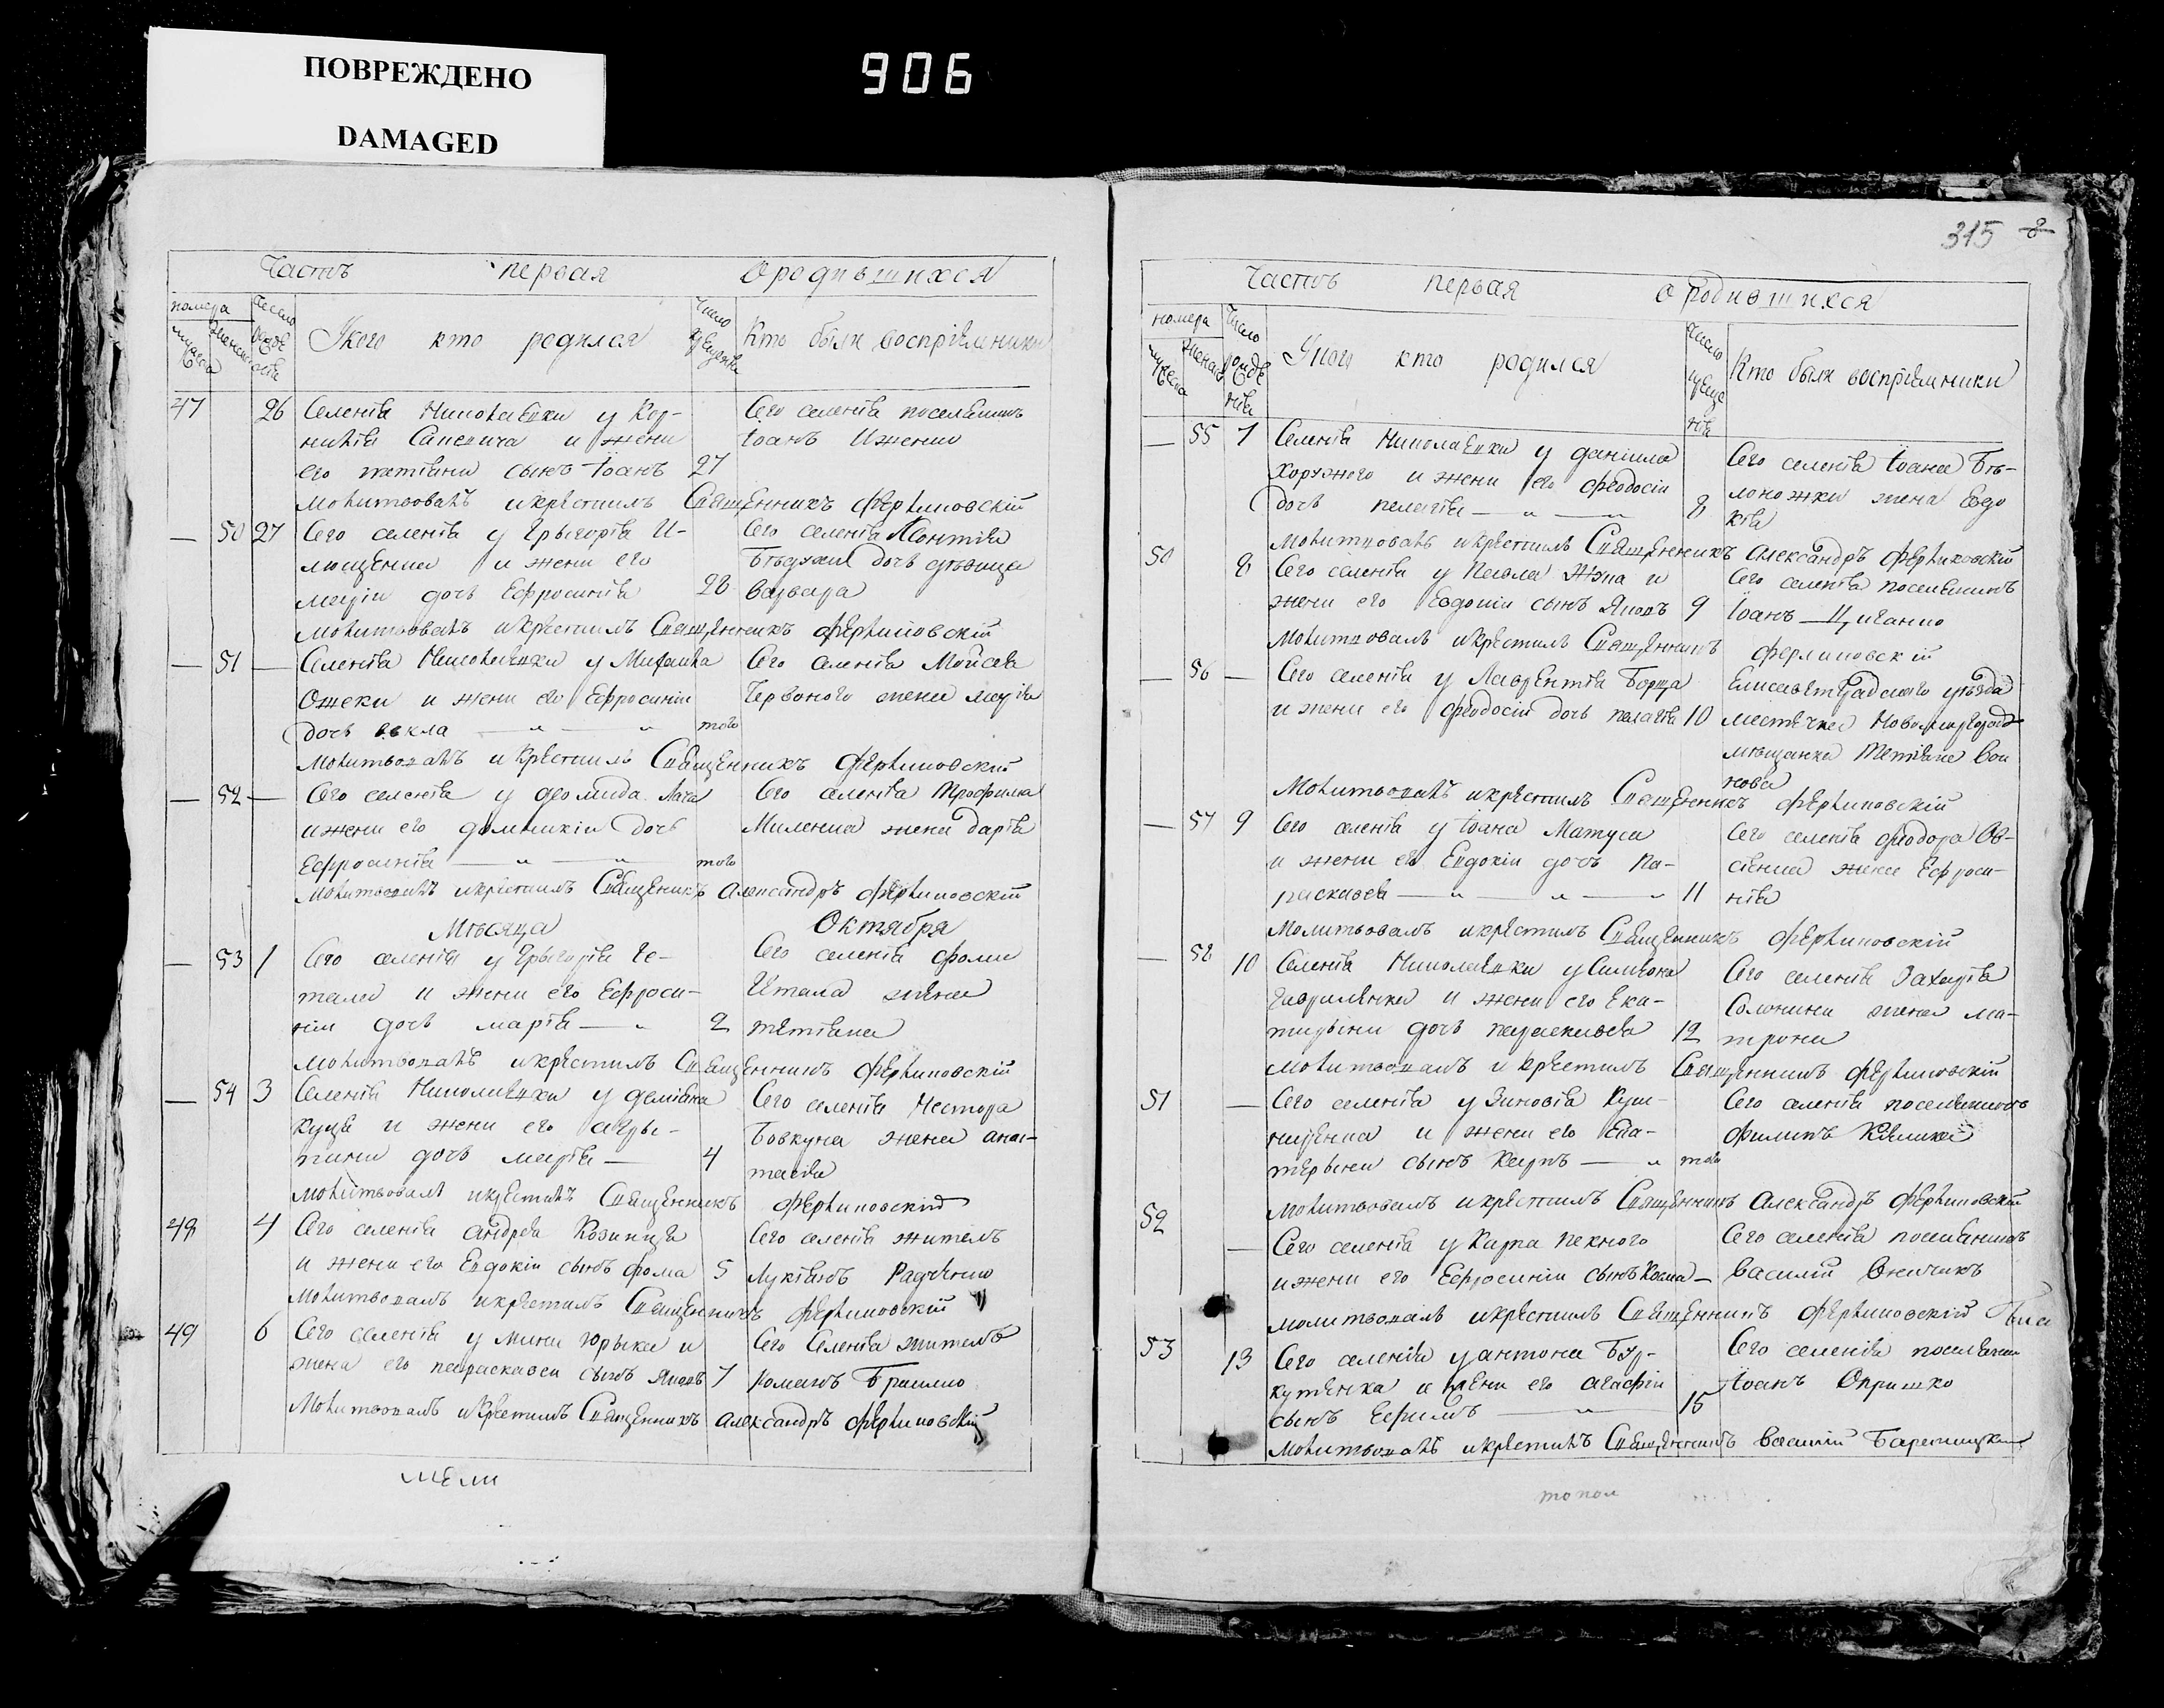 ПОВРЕЖДЕНО
DAMAGED
906
Часть первая о родившихся
номера
Число
Укого кто родился
Кто были воспріемники
47 26 Селенія Николаевки у Кор-
нилія и жени
его татіяни сынъ Іоанъ 27
Сего селенія поселянинъ
Іоанъ
молитвовалъ икрестилъ Священникъ Ферлиповскій
— 50 27 Сего селенія у Грыгорія И-
лющенка и жени его
маріи дочъ Ефросинія 28
Сего селенія Леонтія
дочъ дѣвица
варвара
молитвовалъ икрестилъ Священникъ Ферлиповскій
— 51 — Селенія Николаевки у Михаила
Ожеки и жени его Ефросиніи
дочъ векла — " — " того
Сего селенія Мойсея
Червоного жена марія
Молитвовалъ и крестилъ Священникъ Ферлиповскій
— 52 — Сего селенія у Деомида Лача
ижени его домникіи дочъ
Ефросинія — " — " того
Сего селенія Трофима
Миленка жена дарія
Молитвовалъ икрестилъ Священикъ Александръ Ферлиповскій
Мѣсяца Октября
— 53 1 Сего селенія у Грыгорія Че-
тала и жени его Ефроси-
ніи дочъ марія — " 2
Сего селенія Фоми
Четала жена
татіяна
молитвовалъ икрестилъ Священникъ Ферлиповскій
— 54 3 Селенія Николаевки у Деміяна
Куца и жени его агры-
пини дочъ марія — 4
Сего селенія Нестора
Бовкуна жена анас-
тасія
молитвовалъ икрестилъ Священникъ Ферлиповскій
48 4 Сего селенія андрея Козинца
и жени его Евдокіи сынъ фома 5
Сего селенія житель
Лукіянъ Радченко
молитвовалъ икрестилъ Священникъ Ферлиповскій
49 6 Сего селенія у мини Юрыка и
жена его параскавеи сынъ Яковъ 7
Сего Селенія житель
романъ
Молитвовалъ икрестилъ Священникъ александръ Ферлиповскій
315
Часть первая о родившихся
номера
Число
Укого кто родился
Кто были воспріемники
— 55 7 Селенія Николаевки у даніила
Хоружего и жени его Феодосіи
дочъ пелагія — " — " 8
Сего селенія Іоана Бѣ-
лоножки жена Евдо
кія
молитвовалъ икрестилъ Священникъ Александръ Ферлиповскій
50 8 Сего селенія у Павла и
жени его Евдокіи сынъ Яковъ 9
Сего селенія поселянинъ
Іоанъ Циганко
Молитвовалъ икрестилъ Священникъ Ферлиповскій
— 56 — Сего селенія у Лаврентія Борща
и жени его Феодосіи дочъ пелагія 10
Елисаветградского уѣзда
местечка Новомиргорода
мещанка Татіана Вои
нова
Молитвовалъ икрестилъ Священникъ Ферлиповскій
— 57 9 Сего селенія у Іоана Матуса
и жени его Евдокіи дочъ Па-
раскавея — " — " — " 11
Сего селенія Феодора Ов-
сіенка жена Ефроси-
нія
Молитвовалъ икрестилъ Священникъ Ферлиповскій
— 58 10 Селенія Николаевки у Симеона
Гавриленка и жени его Ека-
тирыни дочъ параскавея 12
Сего селенія Захарія
Солонини жена ма-
трона
Молитвовалъ и крестилъ Священникъ Ферлиповскій
51 — Сего селенія у Зиновія Куш-
ниренка и жени его Ека-
терыни сынъ Карпъ — " того
Сего селенія поселянинъ
Филипъ
Молитвовалъ икрестилъ Священникъ Александръ Ферлиповскій
52 — Сего селенія у Карпа Пекного
ижени его Ефросиніи сынъ Козма —
Сего селенія поселянинъ
Василій
молитвовалъ икрестилъ Священникъ Ферлиповскій
53 13 Сего селенія у антона Бур-
кутенка и жени его агафіи
сынъ Ефимъ — " — 15
Сего селенія поселянин
Іоанъ Опришко
Молитвовалъ икрестилъ Священникъ Василій